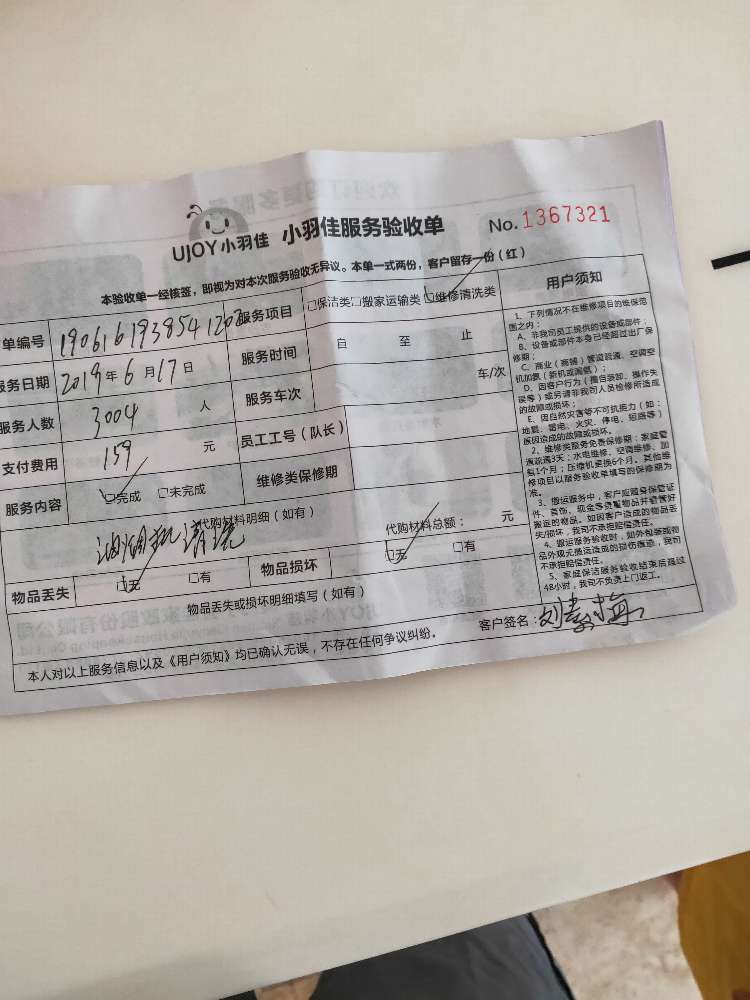 UJOY小羽佳 小羽佳服务验收单 No.1367321
本验收单一经核签，即视为对本次服务验收无异议。本单一式两份，客户留存一份（红）
单编号 服务项目 □保洁类□搬家运输类□维修清洗类
服务日期 2019年6月17日 服务时间 自 至 止
服务人数 3004 人 服务车次 车/次
支付费用 159 元 员工工号（队长）
服务内容 □完成 □未完成 维修类保修期
代购材料明细（如有） 代购材料总额： 元
油烟机清洗
物品丢失 □无 □有 物品损坏 □无 □有
物品丢失或损坏明细填写（如有）
本人对以上服务信息以及《用户须知》均已确认无误，不存在任何争议纠纷。 客户签名：
用户须知
1、下列情况不在维修项目的维保范
围之内：
A、非我司员工提供的设备或部件；
B、设备或部件本身已经超过出厂保
修期；
C、商业（商铺）管道疏通、空调空
机加氨（新机或漏氨）；
D、因客户行为（擅自装卸、操作失
误等）或另请非我司人员检修所造成
的故障或损坏；
E、因自然灾害等不可抗拒力（如：
地震、雷电、火灾、停电、短路等）
原因造成的故障或损坏。
2、维修类服务免费保修期：家庭管
道疏通3天；水电维修、空调维修、加
氨1个月；压缩机更换6个月。其他维
修项目以服务验收单填写的保修期为
准。
3、搬运服务中，客户应随身保管证
件、首饰、现金等贵重物品并看管好
搬运的物品。如因客户造成的物品丢
失/损坏，我司不承担赔偿责任。
4、搬运服务验收时，如外包装或物
品外观无搬运造成的损伤痕迹，我司
不承担赔偿责任。
5、家庭保洁服务验收结束后超过
48小时，我司不负责上门返工。